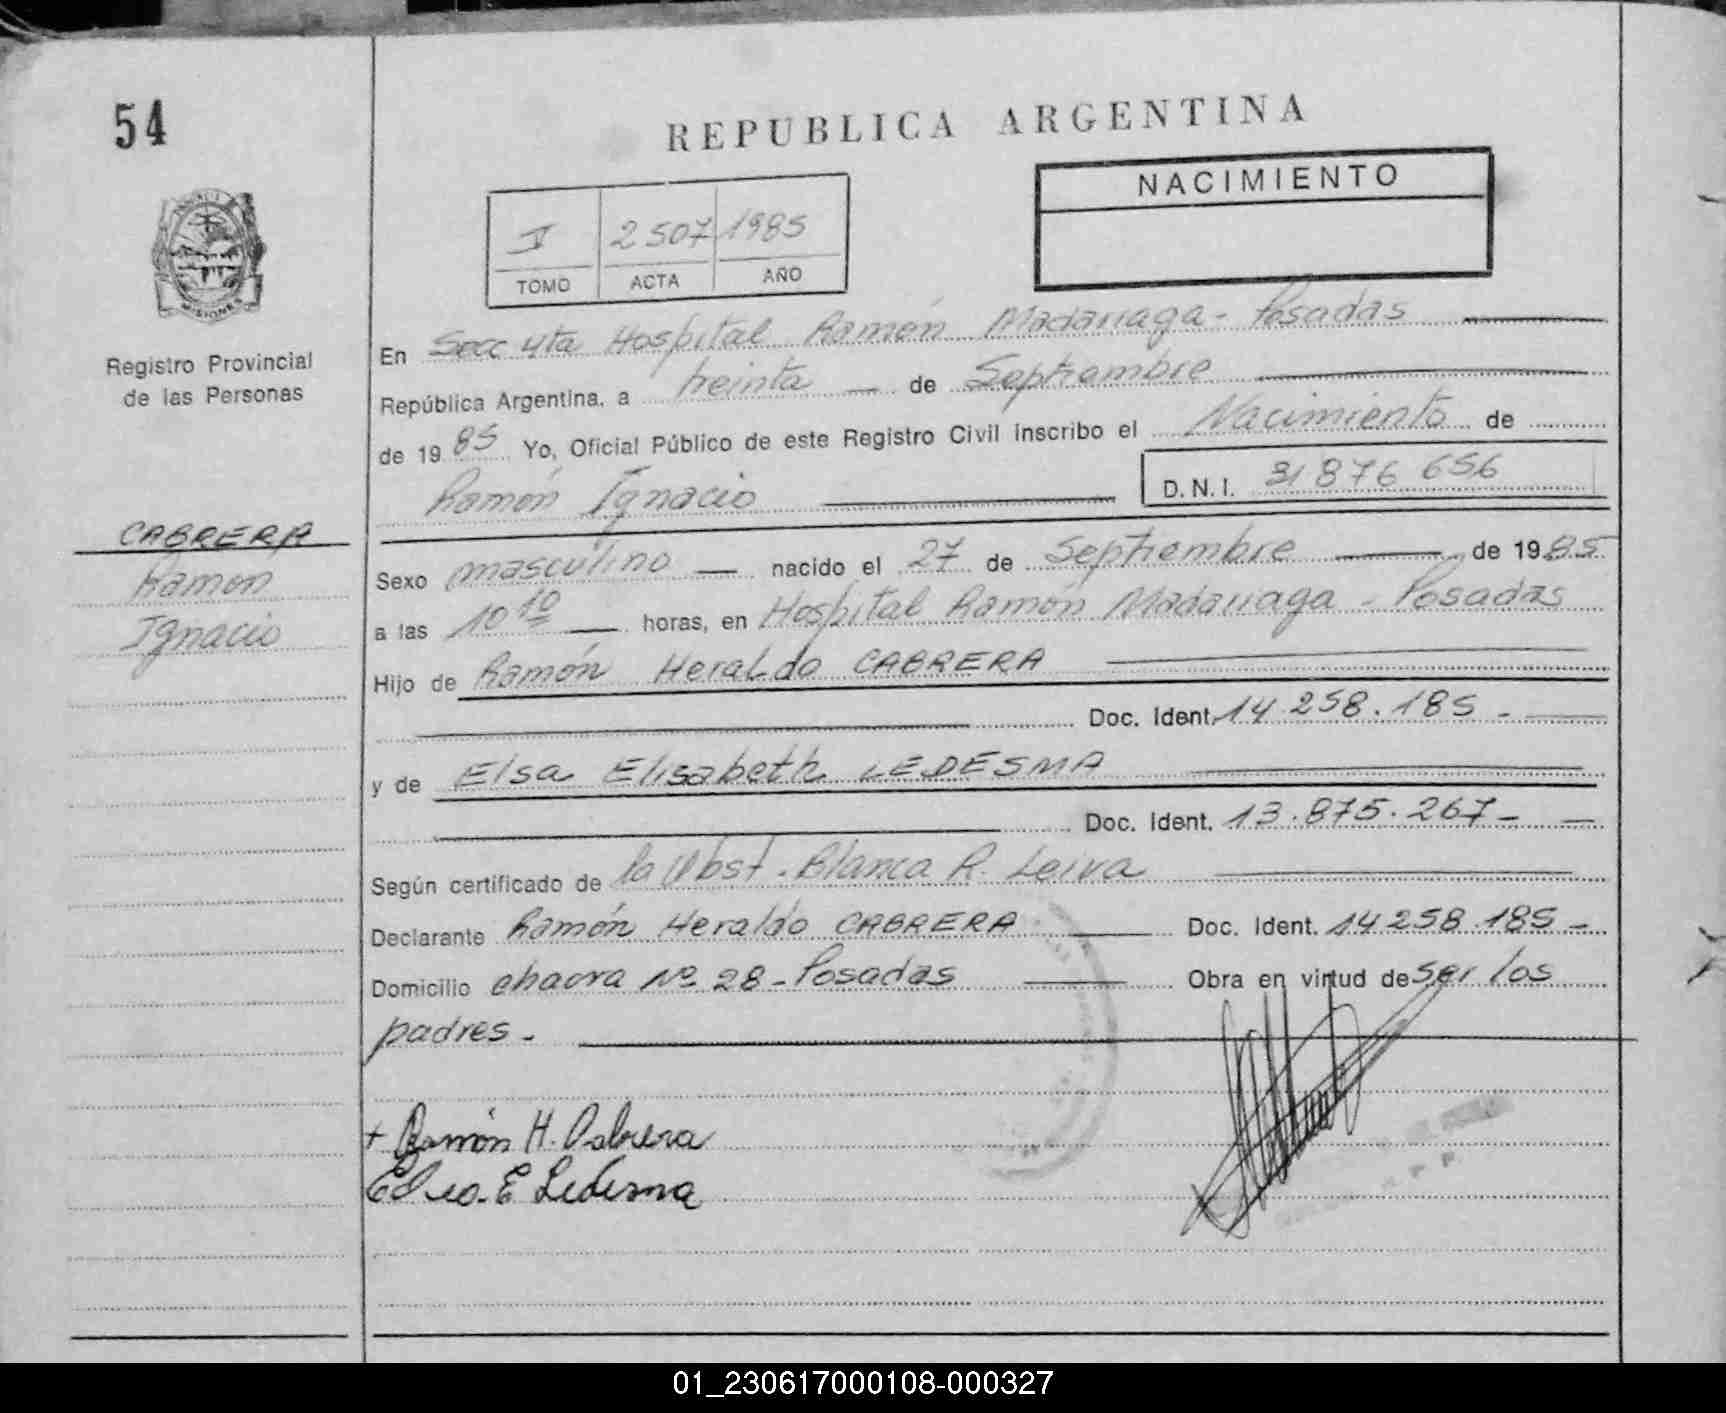 54
REPUBLICA ARGENTINA
NACIMIENTO
V 2507 1985
TOMO ACTA AÑO
MISIONES
Registro Provincial
de las Personas
CABRERA
Ramón
Ignacio
En Secc 4ta Hospital Ramón Madariaga - Posadas
República Argentina, a treinta — de Septiembre
de 1985 Yo, Oficial Público de este Registro Civil inscribo el Nacimiento de
Ramón Ignacio D.N.I. 31 876 656
Sexo masculino — nacido el 27 de Septiembre — de 1985
a las 10 10 — horas, en Hospital Ramón Madariaga - Posadas
Hijo de Ramón Heraldo CABRERA
Doc. Ident. 14.258.185 -
y de Elsa Elisabeth LEDESMA
Doc. Ident. 13.875.267 -
Según certificado de la Obst. Blanca R. Leiva
Declarante Ramón Heraldo CABRERA — Doc. Ident. 14.258.185 -
Domicilio chacra Nº 28 - Posadas — Obra en virtud de ser los
padres. -
+ Ramón H. Cabrera
E. Ledesma
01_230617000108-000327